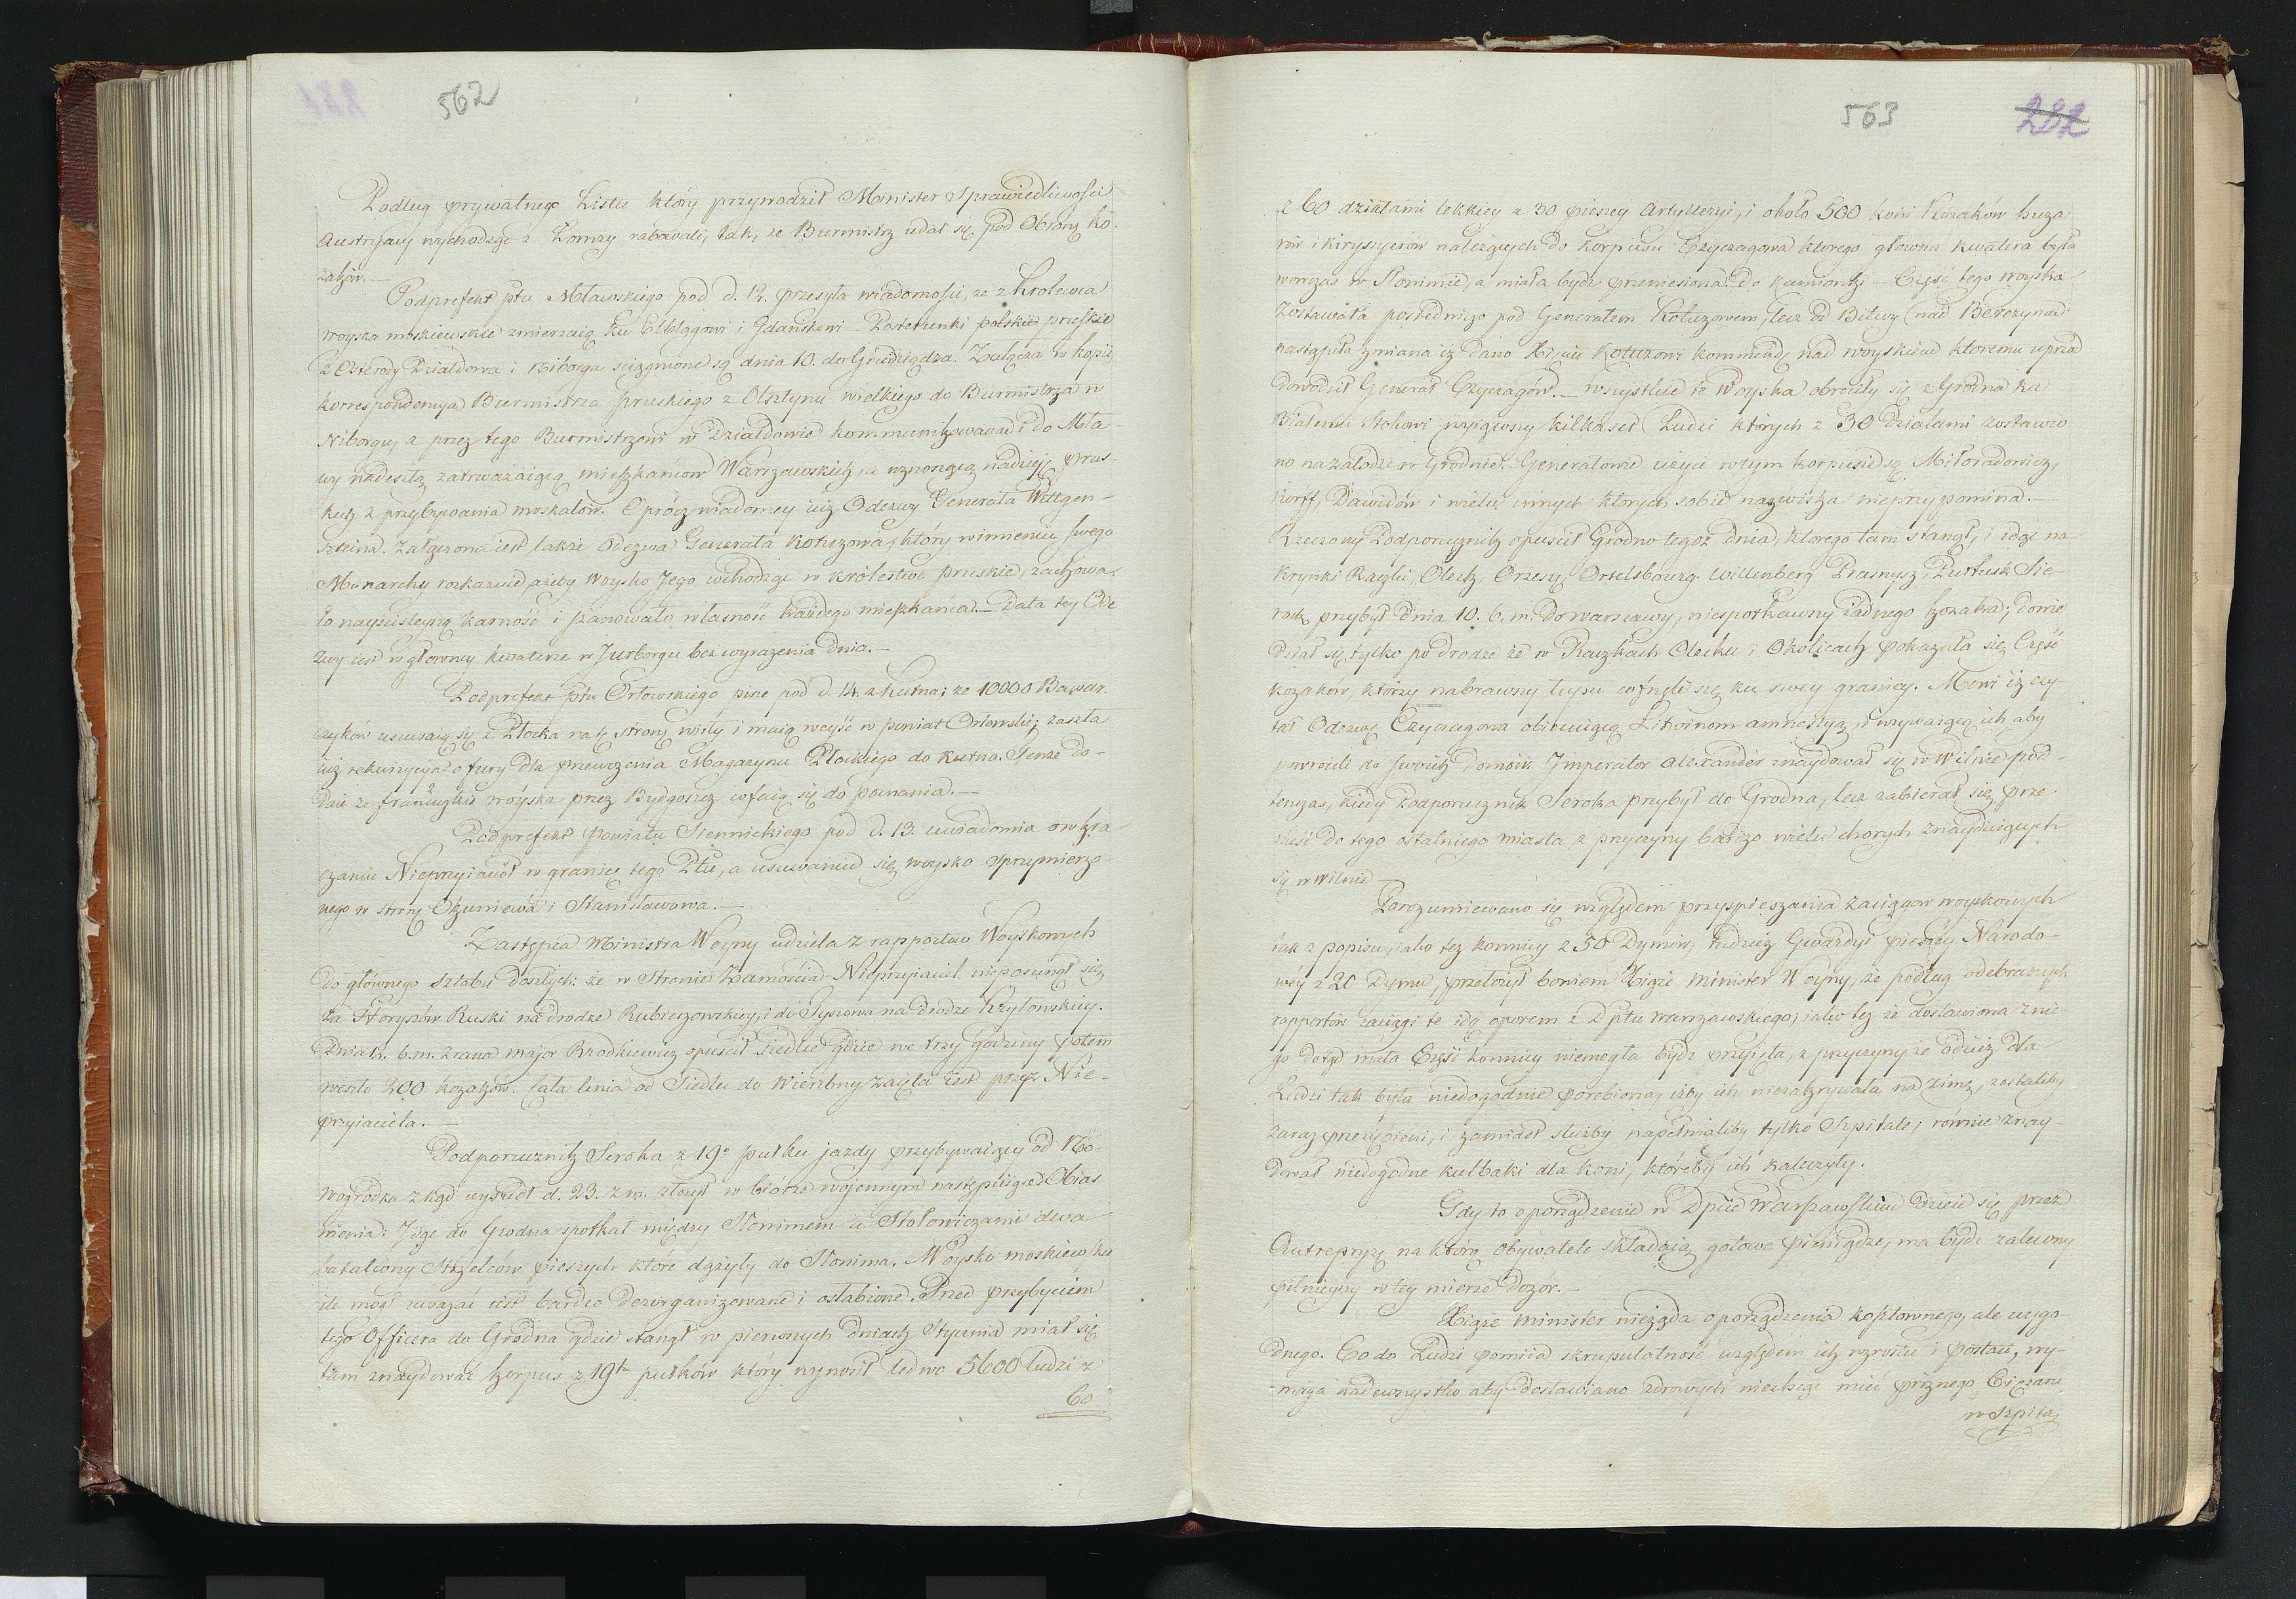 562
Podług prywatnego Listu który przywodził Minister Sprawiedliwości
Austryacy wychodząc z Łomży rabowali, tak, że Burmistrz udał się pod Obronę Ko-
zaków.—
Podprefekt ptu Mławskiego pod d. 12. przesyła wiadomości, że z Krolewca
woyska moskiewskie zmierzaią ku Elblągowi i Gdańskowi — Posterunki polskie pruskie
z Osterody Działdowa i Niborga sciągnione są dnia 10. do Grudziądza. Załącza w kopii
korrespondencyą Burmistrza pruskiego z Olsztyna wielkiego do Burmistrza w
Niborgu, a przez tego Burmistrzowi w Działdowie kommunikowaną i do Mła-
wy nadesłą zatrważaiącą mieszkańcow Warszawskich, a wznoszącą nadzieję prus-
kich z przybywania moskalów. Oprócz wiadomey iuż Odezwy Generała Wittgen-
szteina. Załączona iest także Odezwa Generała Kotuzowa, który wimieniu swego
Monarchy rozkazuie, ażeby Woysko Jego wchodząc w królestwo pruskie, zachowa-
ło nayscisleyszą karność i szanowało własność każdego mieszkańca.— Data tey Ode-
zwy iest w główney kwaterze w Jurborgu bez wyrażenia dnia.—
Podprefekt ptu Orłowskiego pisze pod d. 14. z Kutna; że 10000 Bawar-
czyków usuwaią się z Płocka na tę stronę wisły i maią weyść w powiat Orłowski; zaszła
iuż rekwizycya o fury dla przewożenia Magazynu Płockiego do Kutna. Tenże do-
daie że francuzkie woyska przez Bydgoszcz cofaią się do poznania.—
Podprefekt powiatu Siennickiego pod d. 13. uwiadomia o wkra-
czaniu Nieprzyiaciół w granice tego Ptu, a usuwaniu się woyska sprzymierzo-
nego w stronę Okuniewa i Stanisławowa.—
Zastępca Ministra Woyny udziela z rapportow Woyskowych
do głównego sztabu doszłych: że w Stronie Zamościa Nieprzyiaciel nieposunął się
za Horyszów Ruski na drodze Rubieszowskiey, i do Tyszowa na drodze Kryłowskiey.
Dnia b. m. zrana major Rzodkiewicz opuścił Siedlce gdzie we trzy godziny potem
weszło 200 kozaków. Cała linia od Siedlec do Wierzbny zaięta iest przez Nie-
przyiaciela.—
Podporucznik Seroka z 19o pułku jazdy przybywaiący od No-
wogródka zkąd wyszedł d. 23. z. m. złożył w biórze wojennym następuiące Obias
nienia: Jdąc do Grodna spotkał między Słonimem a Stołowiczami dwa
bataliony Strzelców pieszych które dążyły do Słonima. Woysko moskiewskie
ile mogł uważać iest bardzo dezorganizowane i osłabione. Przed przybyciem
tego Officera do Grodna gdzie stanął w pierwszych dniach Stycznia miał się
tam znaydować korpus z 19tu pułków który wynosił ledwo 5600 ludzi z
60
563
282
z 60 działami lekkiey a 30 pieszey Artylleryi, i około 500 koni Kozaków huza-
rów i kirysyerów należących do korpusu Czyczagowa ktorego główna kwatera była
wowczas w Słonimie, a miała bydź przeniesiona do Kamionki — Część tego woyska
Zostawała poprzednigo pod Generałem Kotuzowem, lecz od Bitwy nad Berezyną
nastąpiła zmiana iż dano Xięciu Kotuzowi kommendę nad woyskiem ktoremu wprzod
dowodził Generał Czyczagów.— Wszystkie te Woyska obrociły się z Grodna ku
Białemu Stokowi wyiąwszy kilkaset Ludzi których z 30 działami zostawio
no na załodze w Grodnie. Generałowie użyci w tym korpusie są Miłoradowicz,
Korff, Dawidów i wielu innych których sobie nazwiska nieprzypomina.—
Rzeczony Podporucznik opuścił Grodno tegoż dnia, ktorego tam stanął, i idąc na
Krynki Raygród, Oleck, Orzesz, Ortelsbourg Willenberg Prasnysz, Pułtusk Sie-
rock przybył dnia 10. b. m. do warszawy, niespotkawszy żadnego kozaka; dowie
dział się tylko po drodze że w Raczkach Olecku i Okolicach pokazała się Część
kozaków, którzy nabrawszy łupu cofnęli się ku swey granicy. Mowi iż czy-
tał Odezwę Czyczagowa obiecuiącą Litwinom amnestyą, i wzywaiącą ich aby
powrocili do swoich domów. Jmperator Alexander znaydował się w Wilnie pod-
tenczas, kiedy Podporucznik Seroka przybył do Grodna, lecz zabierał się prze-
nieść do tego ostatniego miasta z przyczyny bardzo wielu chorych znayduiących
się w Wilnie
Porozumiewano się względem przyspieszania zaciągow woyskowych
tak z popisu, iako też konnicy z 50 Dymów, tudzież Gwardyi pieszey Narodo-
wéy z 20 Dymu, przełożył bowiem Xiąże Minister Woyny, że podług odebranych
rapportów zaciągi te idą oporem z Dptu warszawskiego; iako też że dostawiona z nie-
go dotąd mała Część konnicy niemogła bydź przyięta, z przyczyny że odzież dla
Ludzi tak była niedogodnie porobiona, iżby ich niezakrywała na zimę, zostaliby
zaraz przeziębieni, i zamiast służby napełnialiby tylko Szpitale; równie znay-
dował niedogodne kulbaki dla koni, któreby ich kaleczyły.
Gdy to oporządzenie w Dpcie Warszawskim dzieie się przez
Antrepryzę na którą obywatele składaią gotowe pieniądze, ma bydź zalecony
pilnieyszy w tey mierze dozór.—
Xiąże minister nieżąda oporządzenia kosztownego, ale wygo-
dnego. Co do Ludzi pomiia skrupulatność względem ich wzrostu i postaci, wy-
maga nadewszystko aby dostawiano zdrowych niechcąc mieć próżnego Ciężaru
w szpita